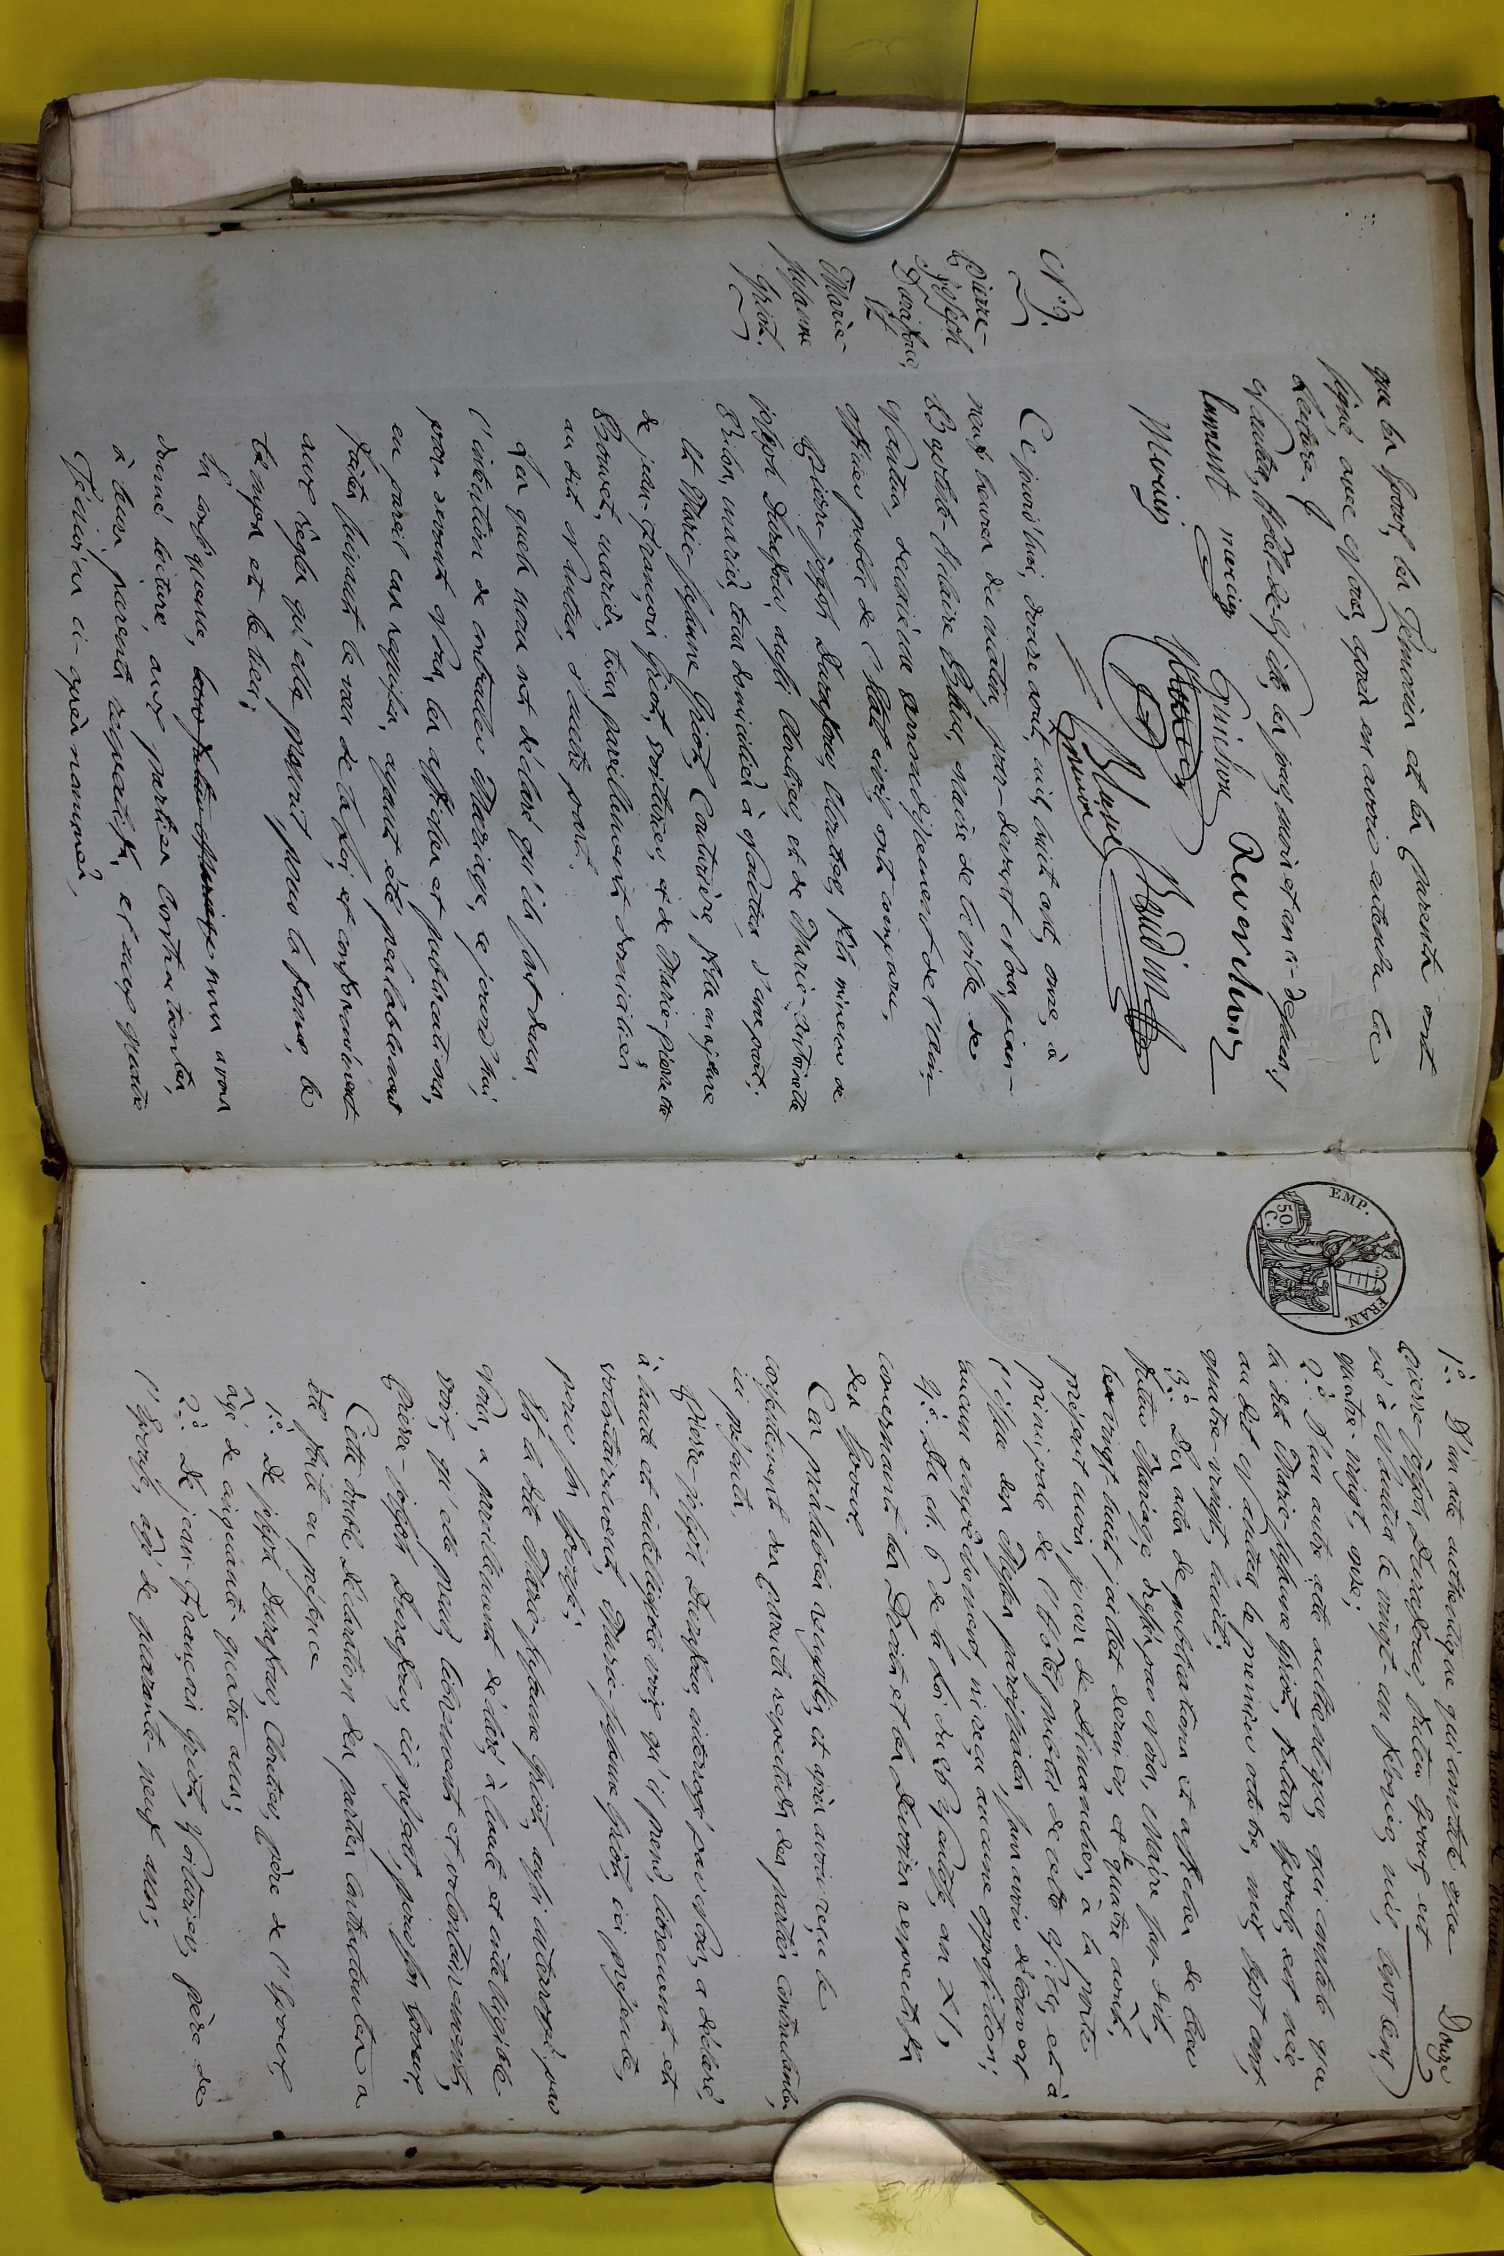 que les Epoux, les Témoins et les parents ont
signé, avec Nous, après en avoir entendu la
Lecture.
Nantua, Hôtel-de-Ville, les jour, mois et an ci-dessus,
Guichon Reverchon
Mercier
Baudin
N.º 9.
Pierre-
Joseph
Durafour,
Et
Marie-
Suzanne
Griot.
Ce jourd'hui, douze août, mil huit cent, onze, à
neuf heures du matin, par-devant Nous, Jean-
Baptiste-Hilaire Maire de la ville de
Nantua, deuxième arrondissement de l'Ain,
officier public de l'état civil, ont comparu,
Pierre-joseph Durafour, Cloutier, fils mineur de
joseph Durafour, aussi Cloutier, et de Marie-Antoinette
mariés, tous domiciliés à Nantua, d'une part.
Et Marie-Suzanne Griot, Couturière, fille majeure
de jean-François Griot, voiturier, et de Marie-pierrette
Bonnet, mariés, tous pareillement domiciliés
au dit Nantua, d'autre part.
Les quels nous ont déclaré qu'ils sont dans
l'intention de contracter Mariage, ce jourd'hui,
par-devant Nous, les affiches et publications,
en pareil cas requises, ayant été préalablement
faites suivant le vœu de la Loi, et conformément
aux règles qu'elle prescrit pour la forme, le
temps et le lieu;
En conséquence, nous avons
donné lecture, aux parties contractantes,
à leurs parents respectifs, et aux quatre
Témoins ci-après nommés,
Douze
1.º D'un acte authentique qui constate que
Pierre-joseph Durafour, futur époux, est
né à Nantua le vingt-un février, mil, sept cent,
quatre-vingt, onze;
2.º D'un autre acte authentique, qui constate que
la dite Marie-Suzanne Griot, future épouse, est née,
au dit Nantua, le premier octobre, mil, sept cent,
quatre-vingt, huit;
3.º Des actes de publications et affiches de leur
futur Mariage, dressés par Nous, Maire sus-dit,
les vingt-huit juillet dernier, et le quatre août,
présent mois, jours de Dimanches, à la porte
principale de l'Hôtel public de cette ville, et à
l'issue des Messes paroissiales, sans avoir découvert
aucun empêchement, ni reçu aucune opposition;
4.º Du ch. 6 de la Loi du 26 Ventôse, an XI,
concernant les Droits et les Devoirs respectifs
des Epoux.
Ces préalables remplis, et après avoir reçu le
consentement des parents respectifs des parties contractantes,
ici présents,
Pierre-joseph Durafour, interrogé par Nous, a déclaré,
à haute et intelligible voix, qu'il prend, librement et
volontairement, Marie-Suzanne Griot, ici présente,
pour son Epouse.
Et la dite Marie-Suzanne Griot, aussi interrogée par
Nous, a pareillement déclaré, à haute et intelligible
voix, qu'elle prend, librement et volontairement,
Pierre-joseph Durafour, ici présent, pour son Epoux.
Cette double déclaration des parties contractantes a
été faite en présence
1.º de joseph Durafour, Cloutier, père de l'Epoux,
âgé de cinquante-quatre ans;
2.º de jean-François Griot, Voiturier, père de
l'Epouse, âgé de quarante-neuf ans;
EMP. FRAN.
50.
C.